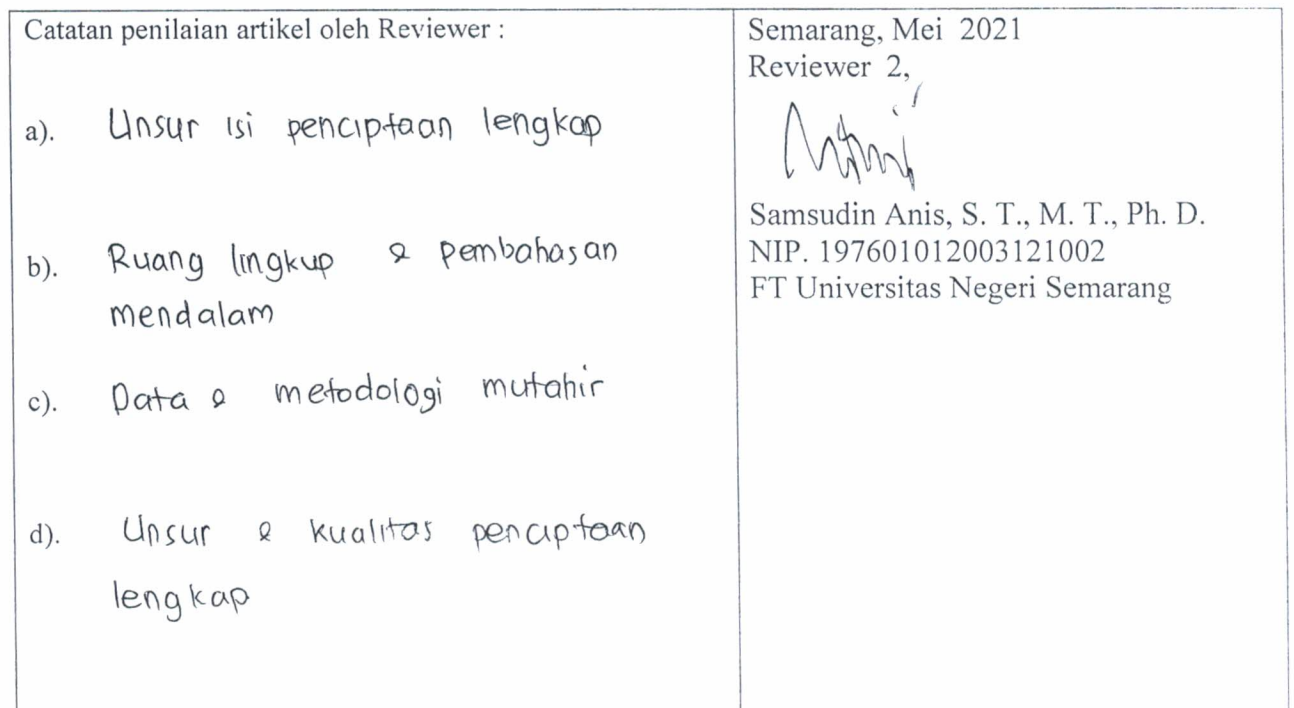 Catatan penilaian artikel oleh Reviewer :
a). Unsur isi penciptaan lengkap
b). Ruang lingkup & pembahasan
mendalam
c). Data & metodologi mutahir
d). Unsur & kualitas penciptaan
lengkap
Semarang, Mei 2021
Reviewer 2,
Samsudin Anis, S. T., M. T., Ph. D.
NIP. 197601012003121002
FT Universitas Negeri Semarang